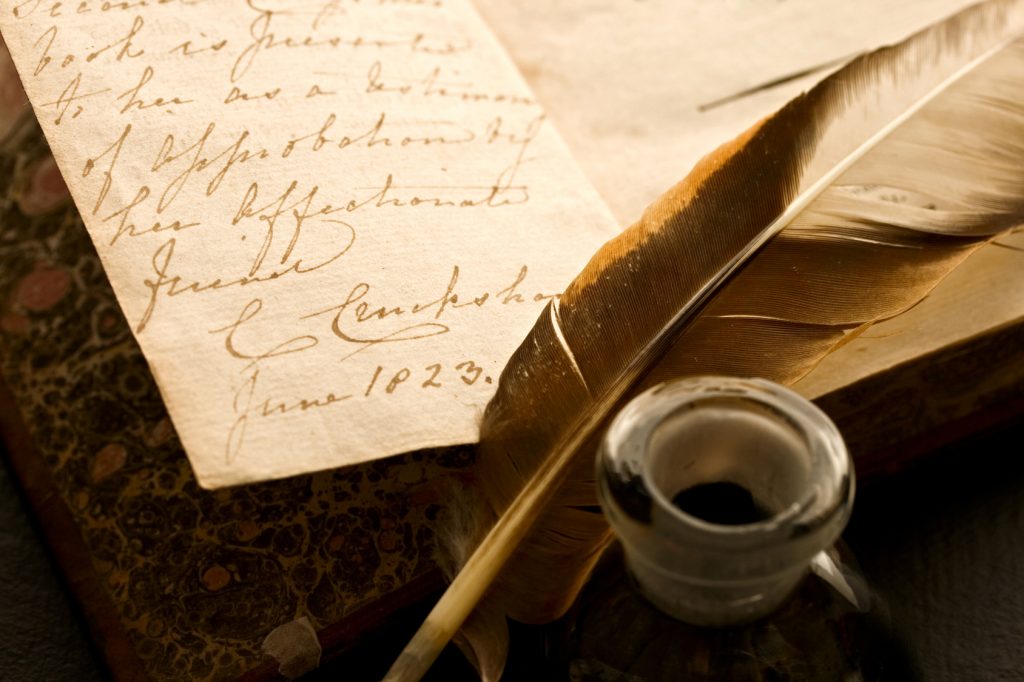 book is presented
to her as a testimony
of approbation by
her affectionate
friend
C Cruiksha
June 1823.